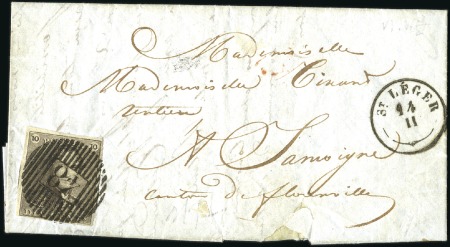 Mademoiselle
Mademoiselle Tinant
rentière
A Jamoigne
canton de florenville
ST LÉGER
14
11
10 10